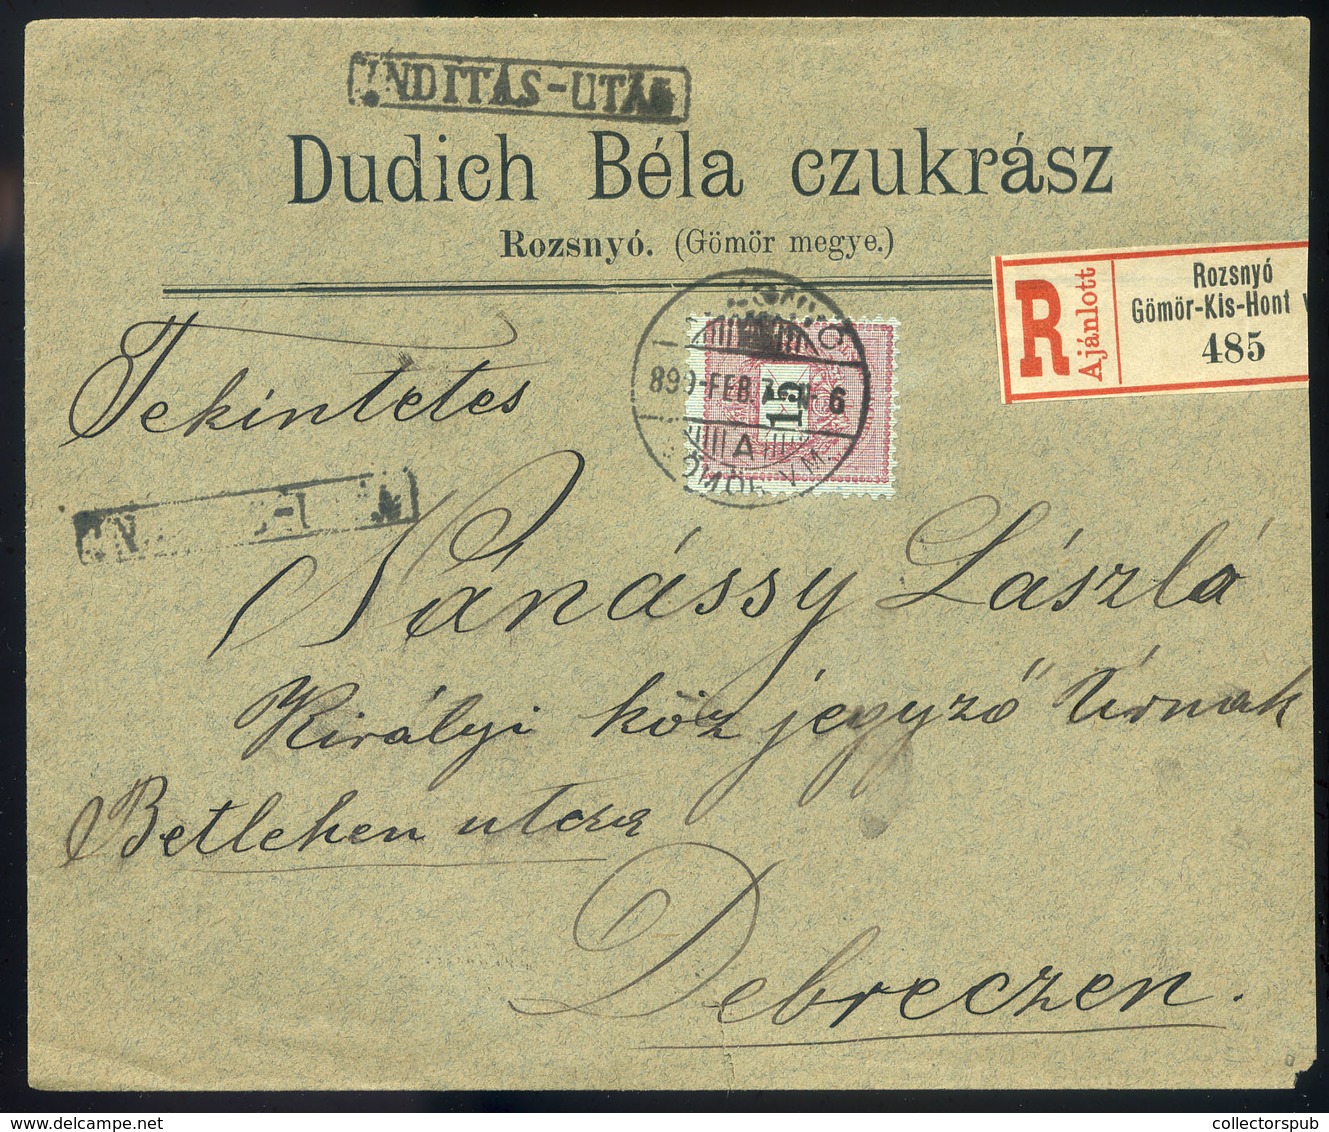 INDITÁS-UTÁN
Dudich Béla czukrász
Rozsnyó. (Gömör megye.)
R Ajánlott
Rozsnyó
Gömör-Kis-Hont v
485
899 FEB. 6
15
A
GÖMÖR VM
Tekintetes
Nánássy László
Királyi közjegyző Úrnak
Betlehen utcza
Debreczen.
collectorspub